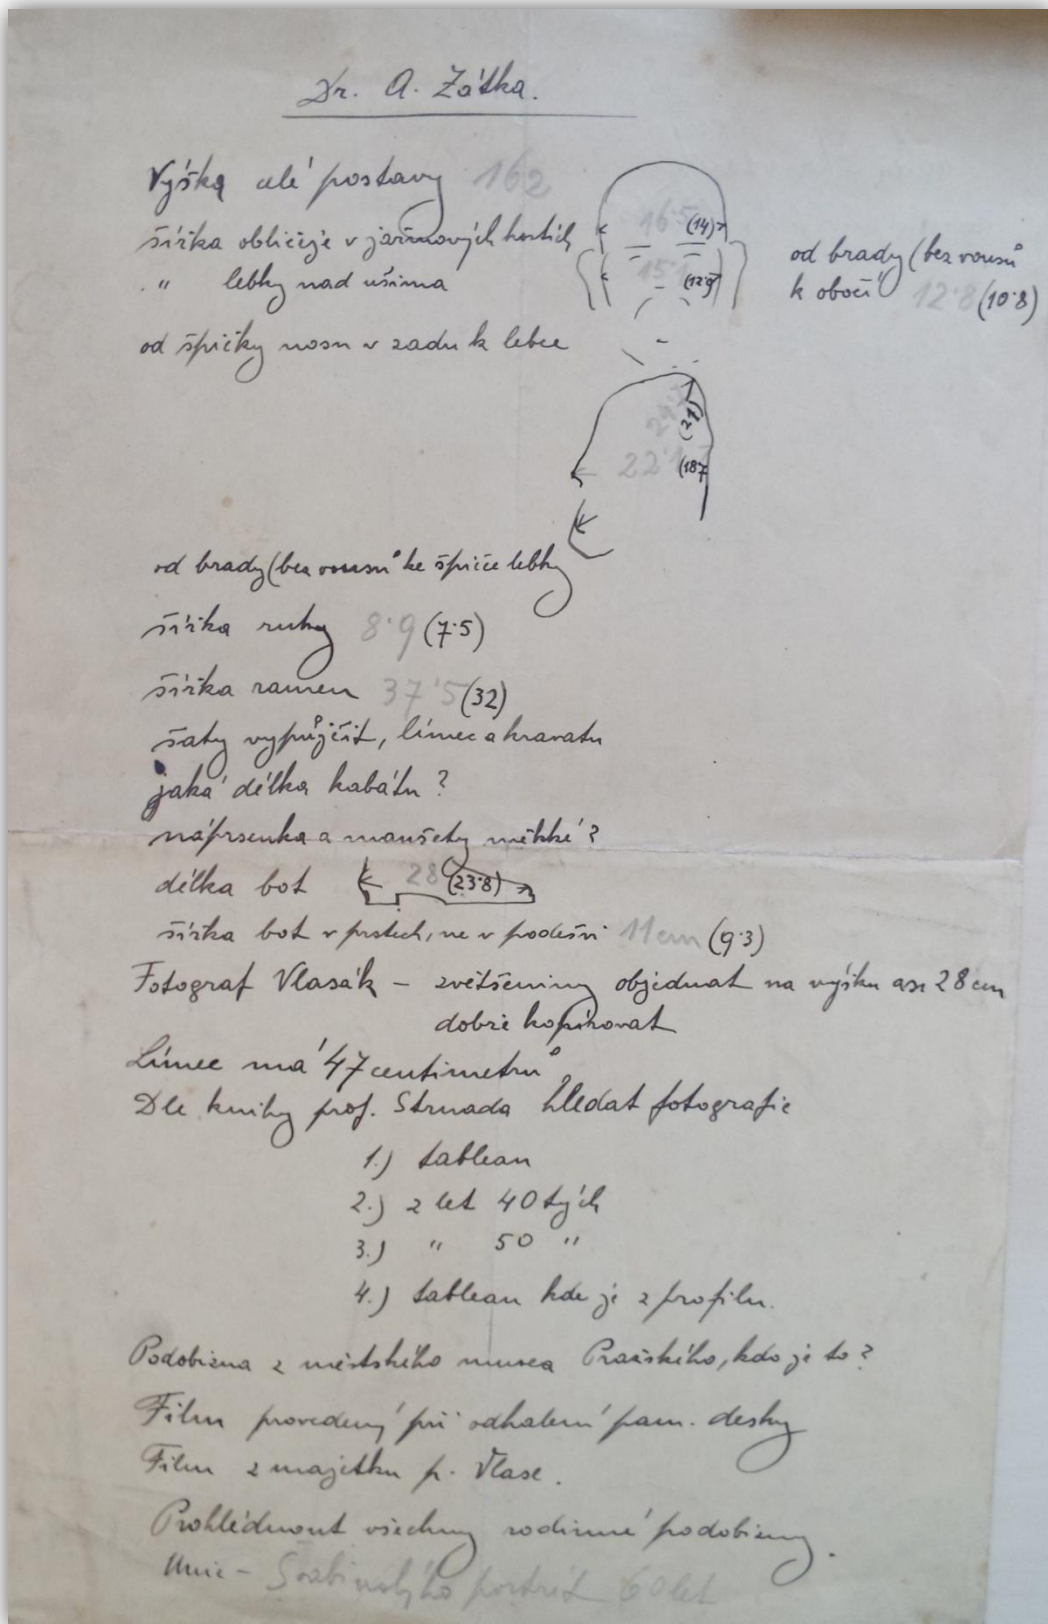 Dr. A. Zátka.
Výška celé postavy 162
šířka obličeje v jařmových kostích
" lebky nad ušima
16·5 (14)
15·1 (12·9)
od brady (bez vousů
k obočí 12·8 (10·8)
od špičky nosu v zadu k lebce
(21)
22·1 (187
od brady (bez vousů ke špičce lebky
šířka ruky 8·9 (7·5)
šířka ramen 37·5 (32)
šaty vypůjčit, límec a kravatu
jaká délka kabátu?
náprsenka a manšety měkké?
délka bot 28 (23·8)
šířka bot v prstech, ne v podešvi 11 cm (9·3)
Fotograf Vlasák – zvětšeniny objednat na výšku asi 28 cm
dobře kopírovat
Límec má 47 centimetrů
Dle knihy prof. Strnada hledat fotografie
1.) tableau
2.) z let 40tých
3.) " 50 "
4.) tableau kde je z profilu.
Podobizna z městského musea Pražského, kdo je to?
Film provedený při odhalení pam. desky
Film z majetku p. Vlase.
Prohlédnout všechny rodinné podobizny.
Švabinského portrét 60 let